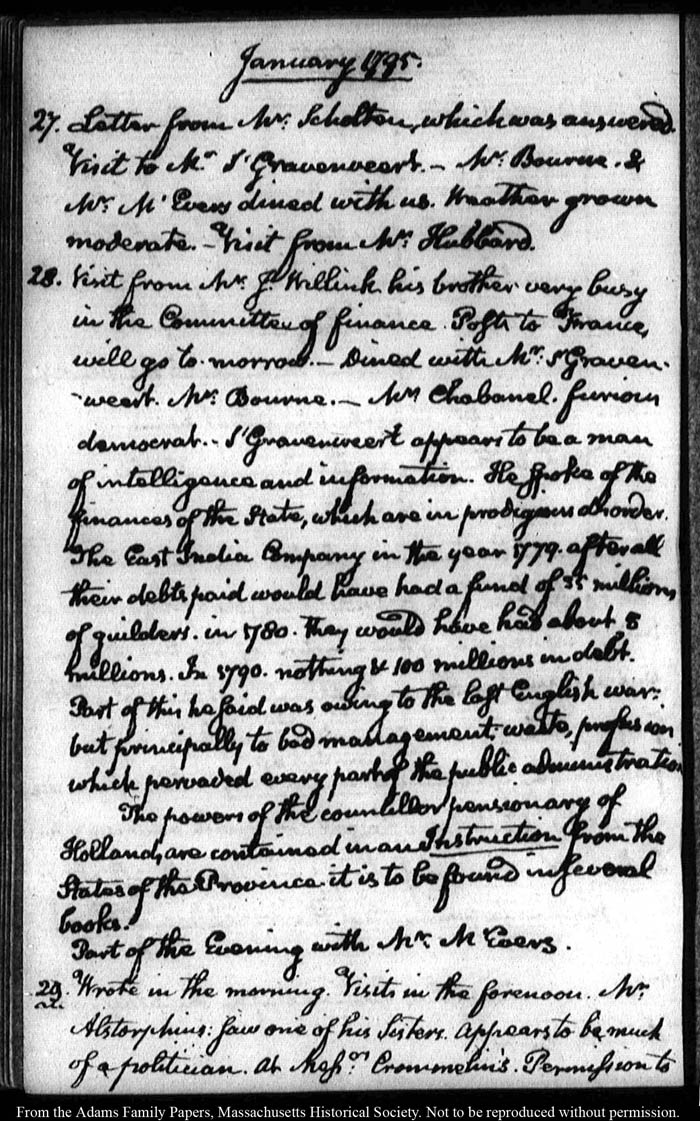 January 1795.
27. Letter from Mr. Scholten, which was answered.
Visit to Mr. S'Gravenweert. — Mr. Bourne. &
Mr. M'Evers dined with us. Weather grown
moderate. — Visit from Mr. Hubbard.
28. Visit from Mr. J. Willink his brother very busy
in the Committee of finance. Posts to France,
will go to-morrow. — Dined with Mr. s'Graven-
-weert. Mr. Bourne. — Mr. Chabanel. furious
democrat. - S'Gravenweert appears to be a man
of intelligence and information. He spoke of the
finances of the State, which are in prodigious disorder.
The East India Company in the year 1779. after all
their debts paid would have had a fund of 35 millions
of guilders. in 1780. they would have had about 8
millions. In 1790. nothing & 100 millions in debt.
Part of this he said was owing to the last English war:
but principally to bad management, waste, profusion
which pervaded every part of the public administration
The powers of the councillor pensionary of
Holland, are contained in an Instruction from the
States of the Province. it is to be found in several
books.
Part of the Evening with Mr. M'Evers.
29. Wrote in the morning. Visits in the forenoon. Mr.
Alstorphius: saw one of his Sisters. appears to be much
of a politician. at Messrs. Crommelin's. Permission to
From the Adams Family Papers, Massachusetts Historical Society. Not to be reproduced without permission.